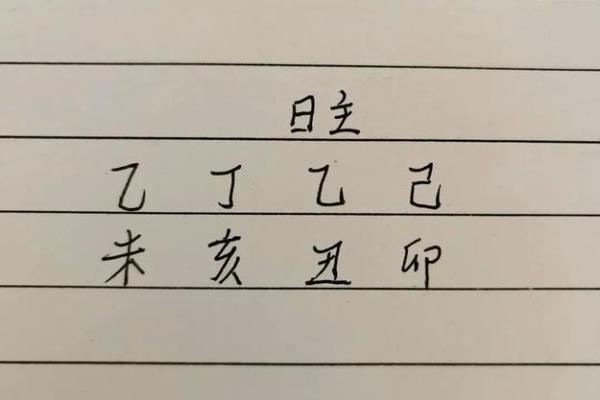 日主
乙 丁 乙 己
未 亥 丑 卯